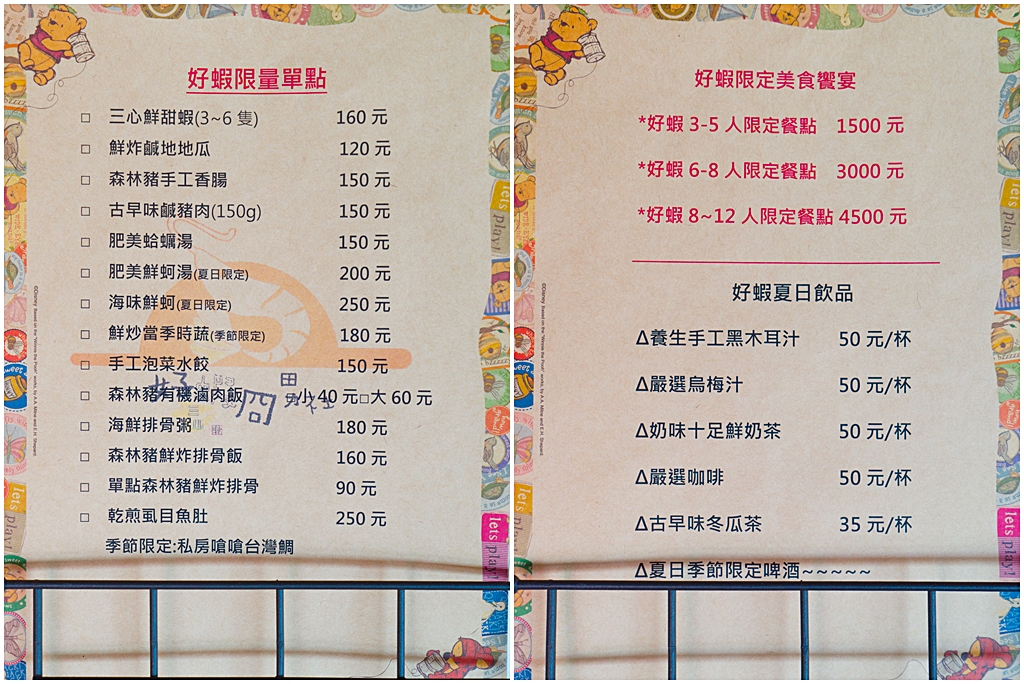 好蝦限量單點
□ 三心鮮甜蝦(3~6 隻) 160 元
□ 鮮炸鹹地地瓜 120 元
□ 森林豬手工香腸 150 元
□ 古早味鹹豬肉(150g) 150 元
□ 肥美蛤蠣湯 150 元
□ 肥美鮮蚵湯(夏日限定) 200 元
□ 海味鮮蚵(夏日限定) 250 元
□ 鮮炒當季時蔬(季節限定) 180 元
□ 手工泡菜水餃 150 元
□ 森林豬有機滷肉飯 □小 40 元□大 60 元
□ 海鮮排骨粥 180 元
□ 森林豬鮮炸排骨飯 160 元
□ 單點森林豬鮮炸排骨 90 元
□ 乾煎虱目魚肚 250 元
季節限定:私房嗆嗆台灣鯛
lets play!
lets play!
sweet
好蝦限定美食饗宴
*好蝦 3-5 人限定餐點 1500 元
*好蝦 6-8 人限定餐點 3000 元
*好蝦 8~12 人限定餐點 4500 元
好蝦夏日飲品
Δ養生手工黑木耳汁 50 元/杯
Δ嚴選烏梅汁 50 元/杯
Δ奶味十足鮮奶茶 50 元/杯
Δ嚴選咖啡 50 元/杯
Δ古早味冬瓜茶 35 元/杯
Δ夏日季節限定啤酒~~~~~
lets play!
lets play!
sweet